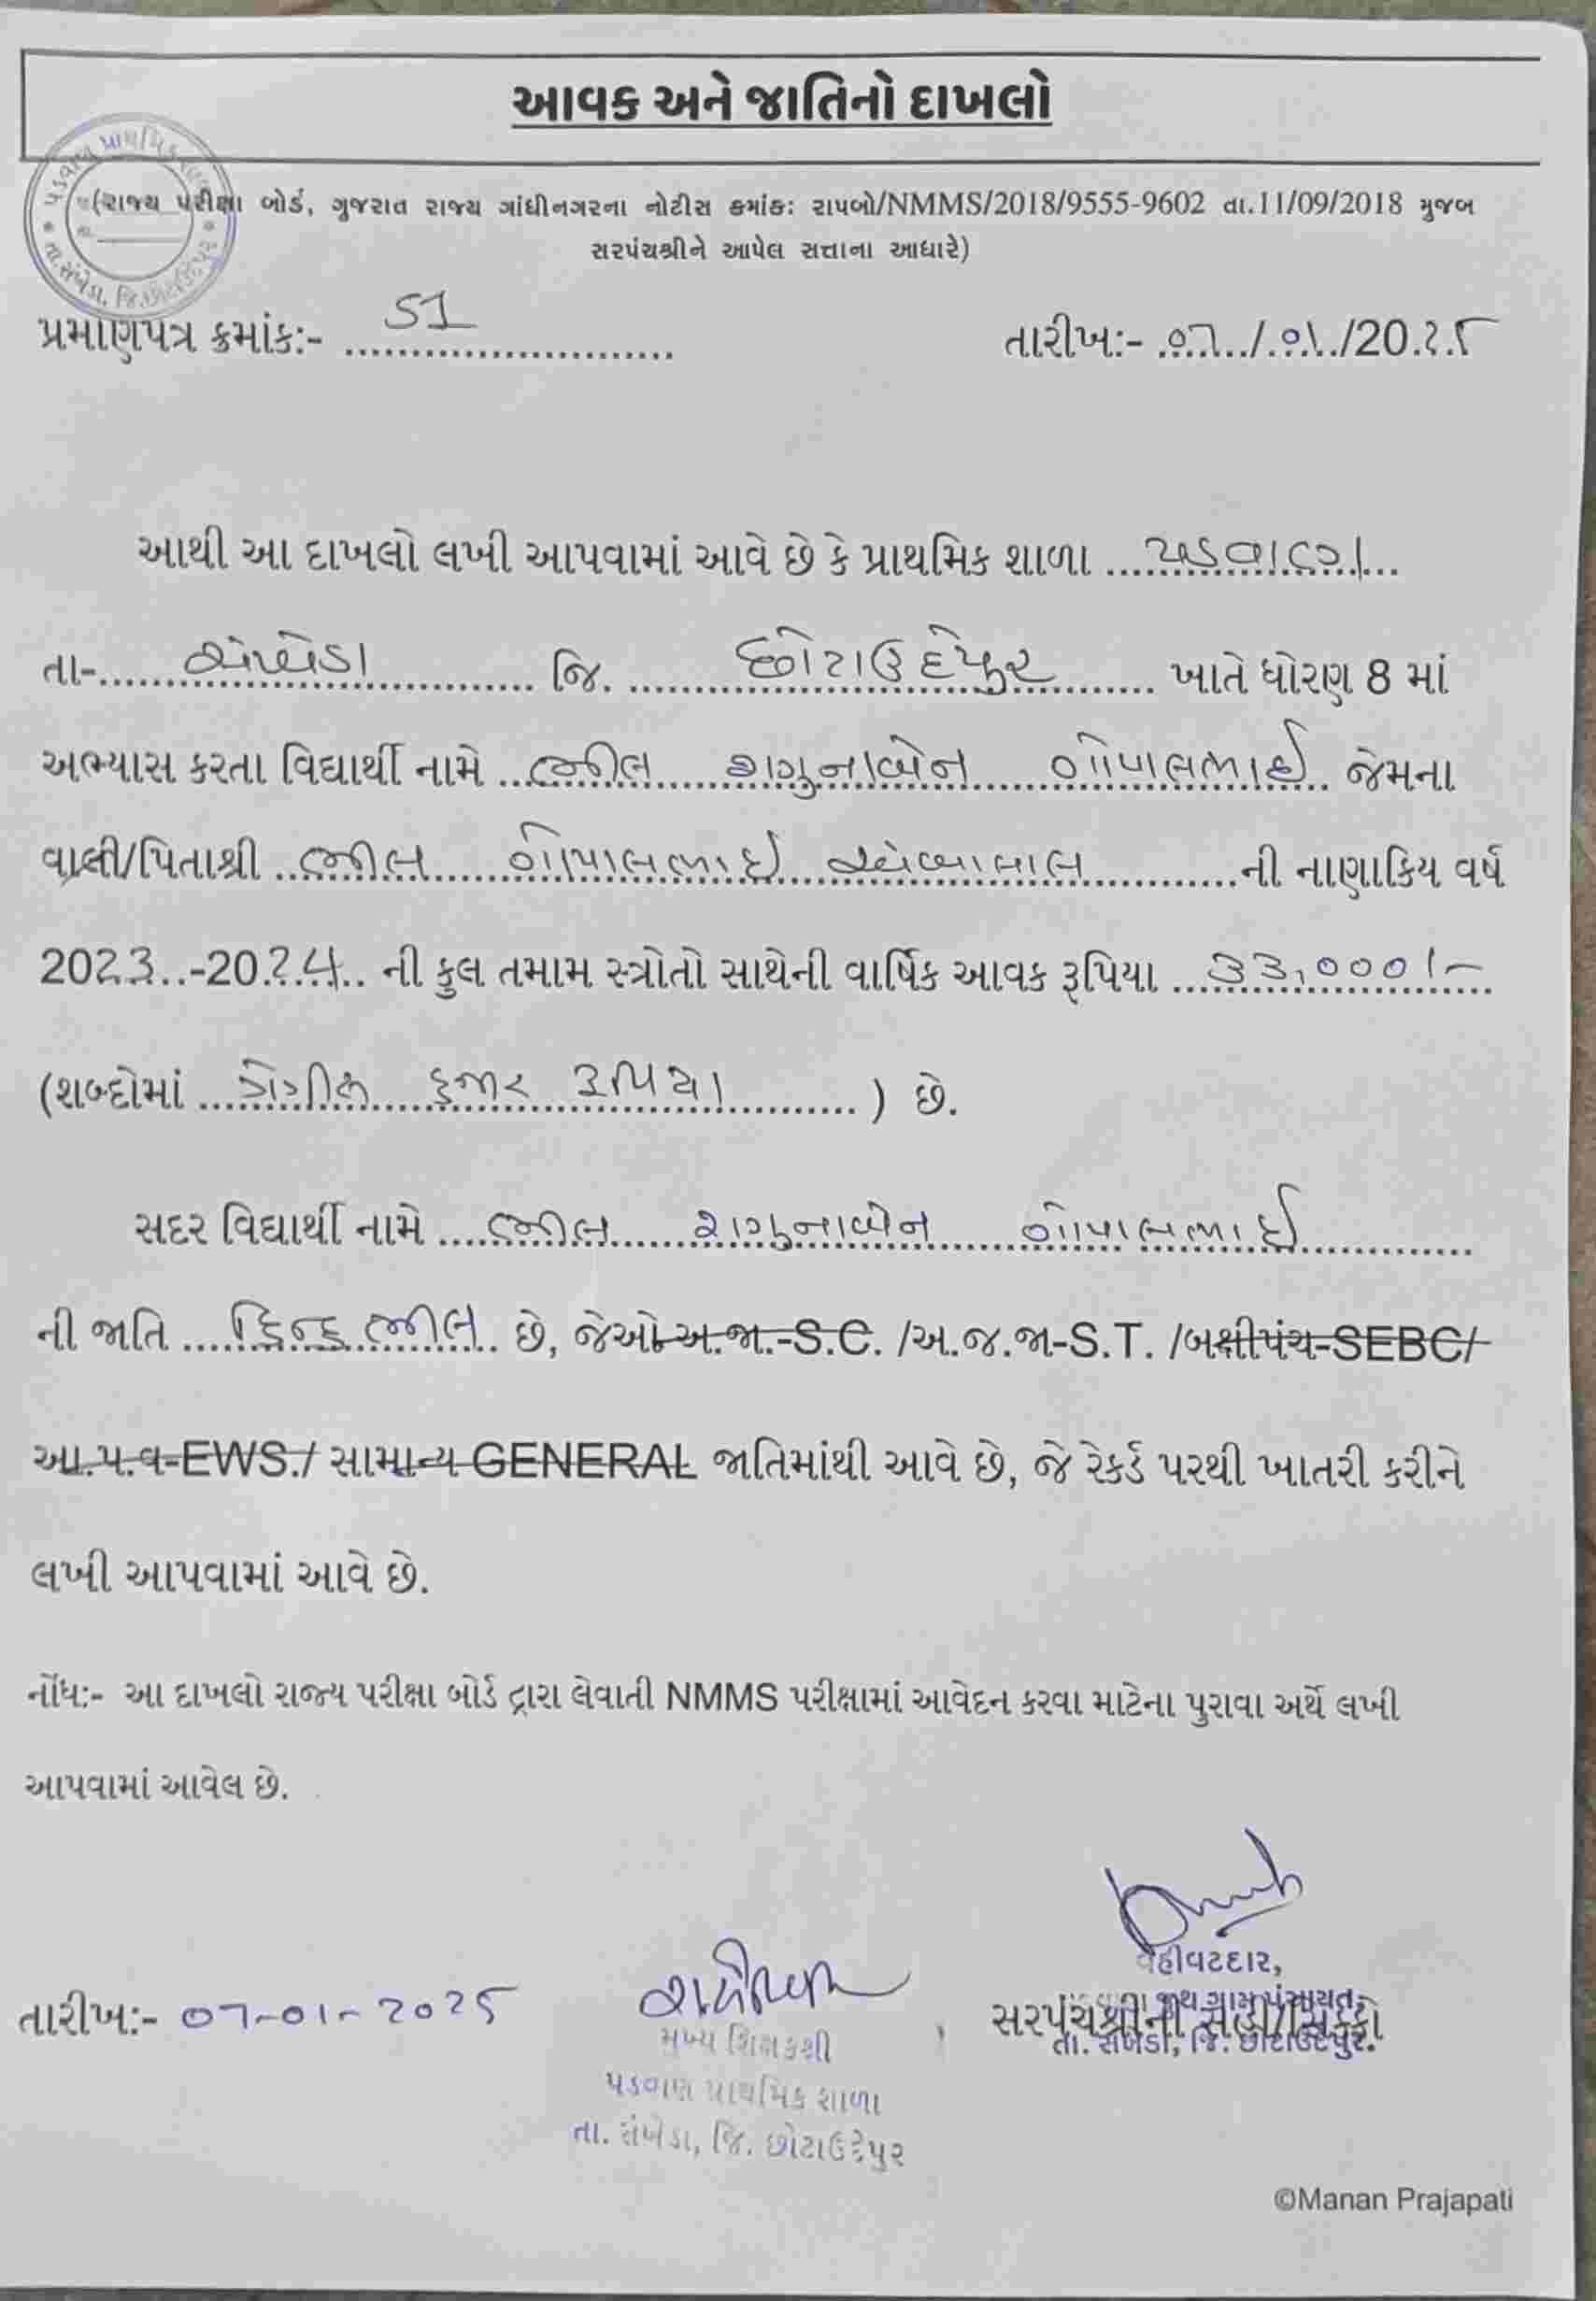 આવક અને જાતિનો દાખલો
(રાજ્ય પરીક્ષા બોર્ડ, ગુજરાત રાજ્ય ગાંધીનગરના નોટીસ ક્રમાંક: રાપબો/NMMS/2018/9555-9602 તા.11/09/2018 મુજબ
સરપંચશ્રીને આપેલ સત્તાના આધારે)
પ્રમાણપત્ર ક્રમાંક:- 51 તારીખ:- 07/01/2025
આથી આ દાખલો લખી આપવામાં આવે છે કે પ્રાથમિક શાળા પડવાણ
તા- સંખેડા જિ. છોટાઉદેપુર ખાતે ધોરણ 8 માં
અભ્યાસ કરતા વિદ્યાર્થી નામે ભીલ શગુનાબેન ગોપાલભાઈ જેમના
વાલી/પિતાશ્રી ભીલ ગોપાલભાઈ ની નાણાકિય વર્ષ
2023-2024 ની કુલ તમામ સ્ત્રોતો સાથેની વાર્ષિક આવક રૂપિયા 33,000/-
(શબ્દોમાં તેત્રીસ હજાર રૂપિયા ) છે.
સદર વિદ્યાર્થી નામે ભીલ શગુનાબેન ગોપાલભાઈ
ની જાતિ હિન્દુ ભીલ છે, જેઓ અ.જા.-S.C. /અ.જ.જા-S.T. /બક્ષીપંચ-SEBC/
આ.પ.વ-EWS./ સામાન્ય GENERAL જાતિમાંથી આવે છે, જે રેકર્ડ પરથી ખાતરી કરીને
લખી આપવામાં આવે છે.
નોંધ:- આ દાખલો રાજ્ય પરીક્ષા બોર્ડ દ્વારા લેવાતી NMMS પરીક્ષામાં આવેદન કરવા માટેના પુરાવા અર્થે લખી
આપવામાં આવેલ છે.
વહીવટદાર,
તારીખ:- 07-01-2025 સરપંચશ્રીની સહી/સિક્કો
તા. સંખેડા, જિ. છોટાઉદેપુર.
મુખ્ય શિક્ષકશ્રી
પડવાણ પ્રાથમિક શાળા
તા. સંખેડા, જિ. છોટાઉદેપુર
©Manan Prajapati